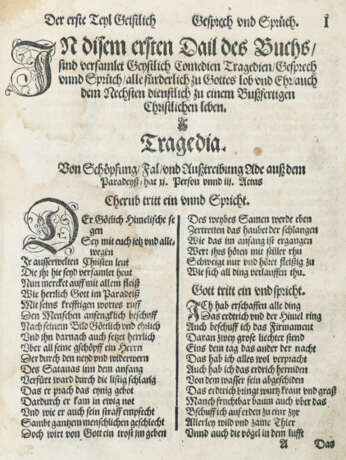 Der erste Teyl Geistlich Gesprech vnd Sprüch. 1
IN disem ersten Dail des Buchs/
sind versamlet Geystlich Comedien Tragedien/ Gesprech
vnnd Sprüch/ alle fürderlich zu Gottes lob vnd Ehr auch
dem Nechsten dienstlich zu einem Bußfertigen
Christlichen leben.
Tragedia.
Von Schöpfung/ Fal/ vnd Außtreibung Ade auß dem
Paradeyß/ hat xi. Person vnnd iij. Actus
Cherub tritt ein vnnd Spricht.
DEr Götlich Himelische se
gen
Sey mit euch ytz vnd alle
wegen
Ir ausserwelten Christen leut
Die ihr hie seyd versamlet heut
Nun mercket auff mit allem fleiß
Wie herrlich Gott im Paradiß
Mit seines krefftigen wortes ruff
Den Menschen anfengklich beschuff
Nach seinem Bild Götlich vnd ehrlich
Vnd ihn darnach auch setzet herrlich
Vber all seine gschöpff ein Herr
Der durch den neyd vnd widerwern
Des Satanas inn dem anfang
Verfürt ward durch die listig schlang
Das er prach das eynig gebot
Dardurch er kam in ewig not
Vnd wie er auch sein straff empfecht
Sambt gantzem menschlichen geschlecht
Doch wirt von Gott ein trost jm geben
Des weybes Samen werde eben
Zertretten das haubet der schlangen
Wie das im anfang ist ergangen
Wert ihrs hören mit stiller rhu
Schweygt nur vnd hört fleissig zu
Wie sich all ding verlauffen thu.
Gott tritt ein vnd spricht.
ICh hab erschaffen alle ding
Das erdtrich vnd der Himel ring
Auch beschuff ich das Firmament
Daran zwey grosse liechter stend
Eins dem tag das ander der nacht
Das hab ich alles wol verpracht
Auch hab ich das erdrich herniden
Von dem wasser fein abgeschiden
Das erdrich bringt wurtz kraut vnd graß
Manch fruchtbar baum auch vber das
Bschuff ich auff erden zu einr zyr
Allerley wild vnd zame Thier
Vnnd auch die vögel in dem lufft
A Das